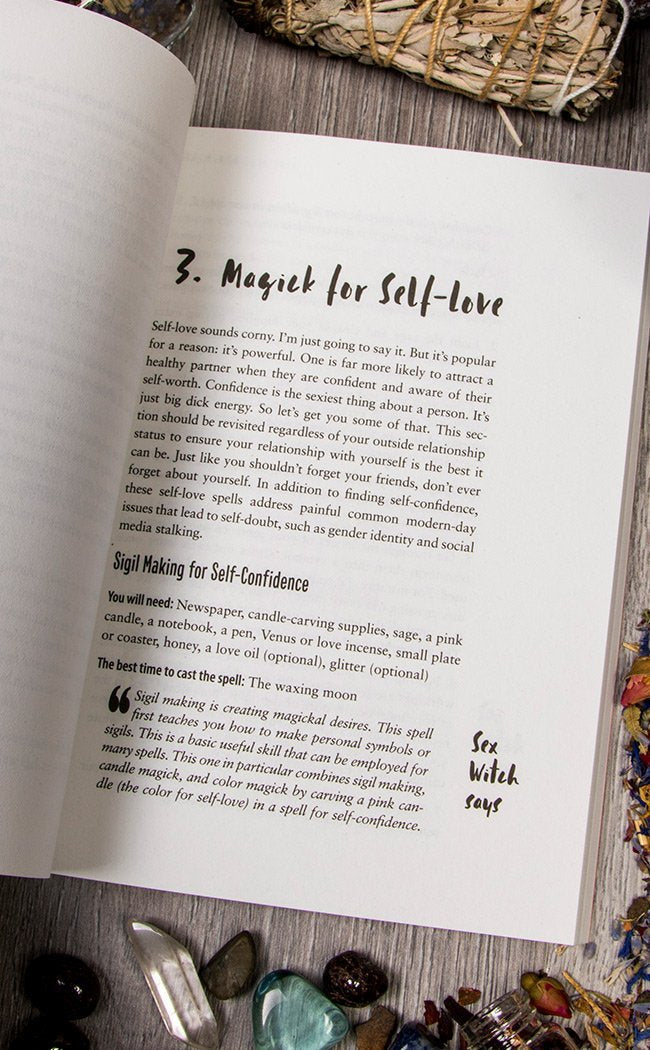 3. Magick for Self-Love
Self-love sounds corny. I'm just going to say it. But it's popular
for a reason: it's powerful. One is far more likely to attract a
healthy partner when they are confident and aware of their
self-worth. Confidence is the sexiest thing about a person. It's
just big dick energy. So let's get you some of that. This sec-
tion should be revisited regardless of your outside relationship
status to ensure your relationship with yourself is the best it
can be. Just like you shouldn't forget your friends, don't ever
forget about yourself. In addition to finding self-confidence,
these self-love spells address painful common modern-day
issues that lead to self-doubt, such as gender identity and social
media stalking.
Sigil Making for Self-Confidence
You will need: Newspaper, candle-carving supplies, sage, a pink
candle, a notebook, a pen, Venus or love incense, small plate
or coaster, honey, a love oil (optional), glitter (optional)
The best time to cast the spell: The waxing moon
“Sigil making is creating magickal desires. This spell
first teaches you how to make personal symbols or
sigils. This is a basic useful skill that can be employed for
many spells. This one in particular combines sigil making,
candle magick, and color magick by carving a pink can-
dle (the color for self-love) in a spell for self-confidence.
Sex
Witch
says